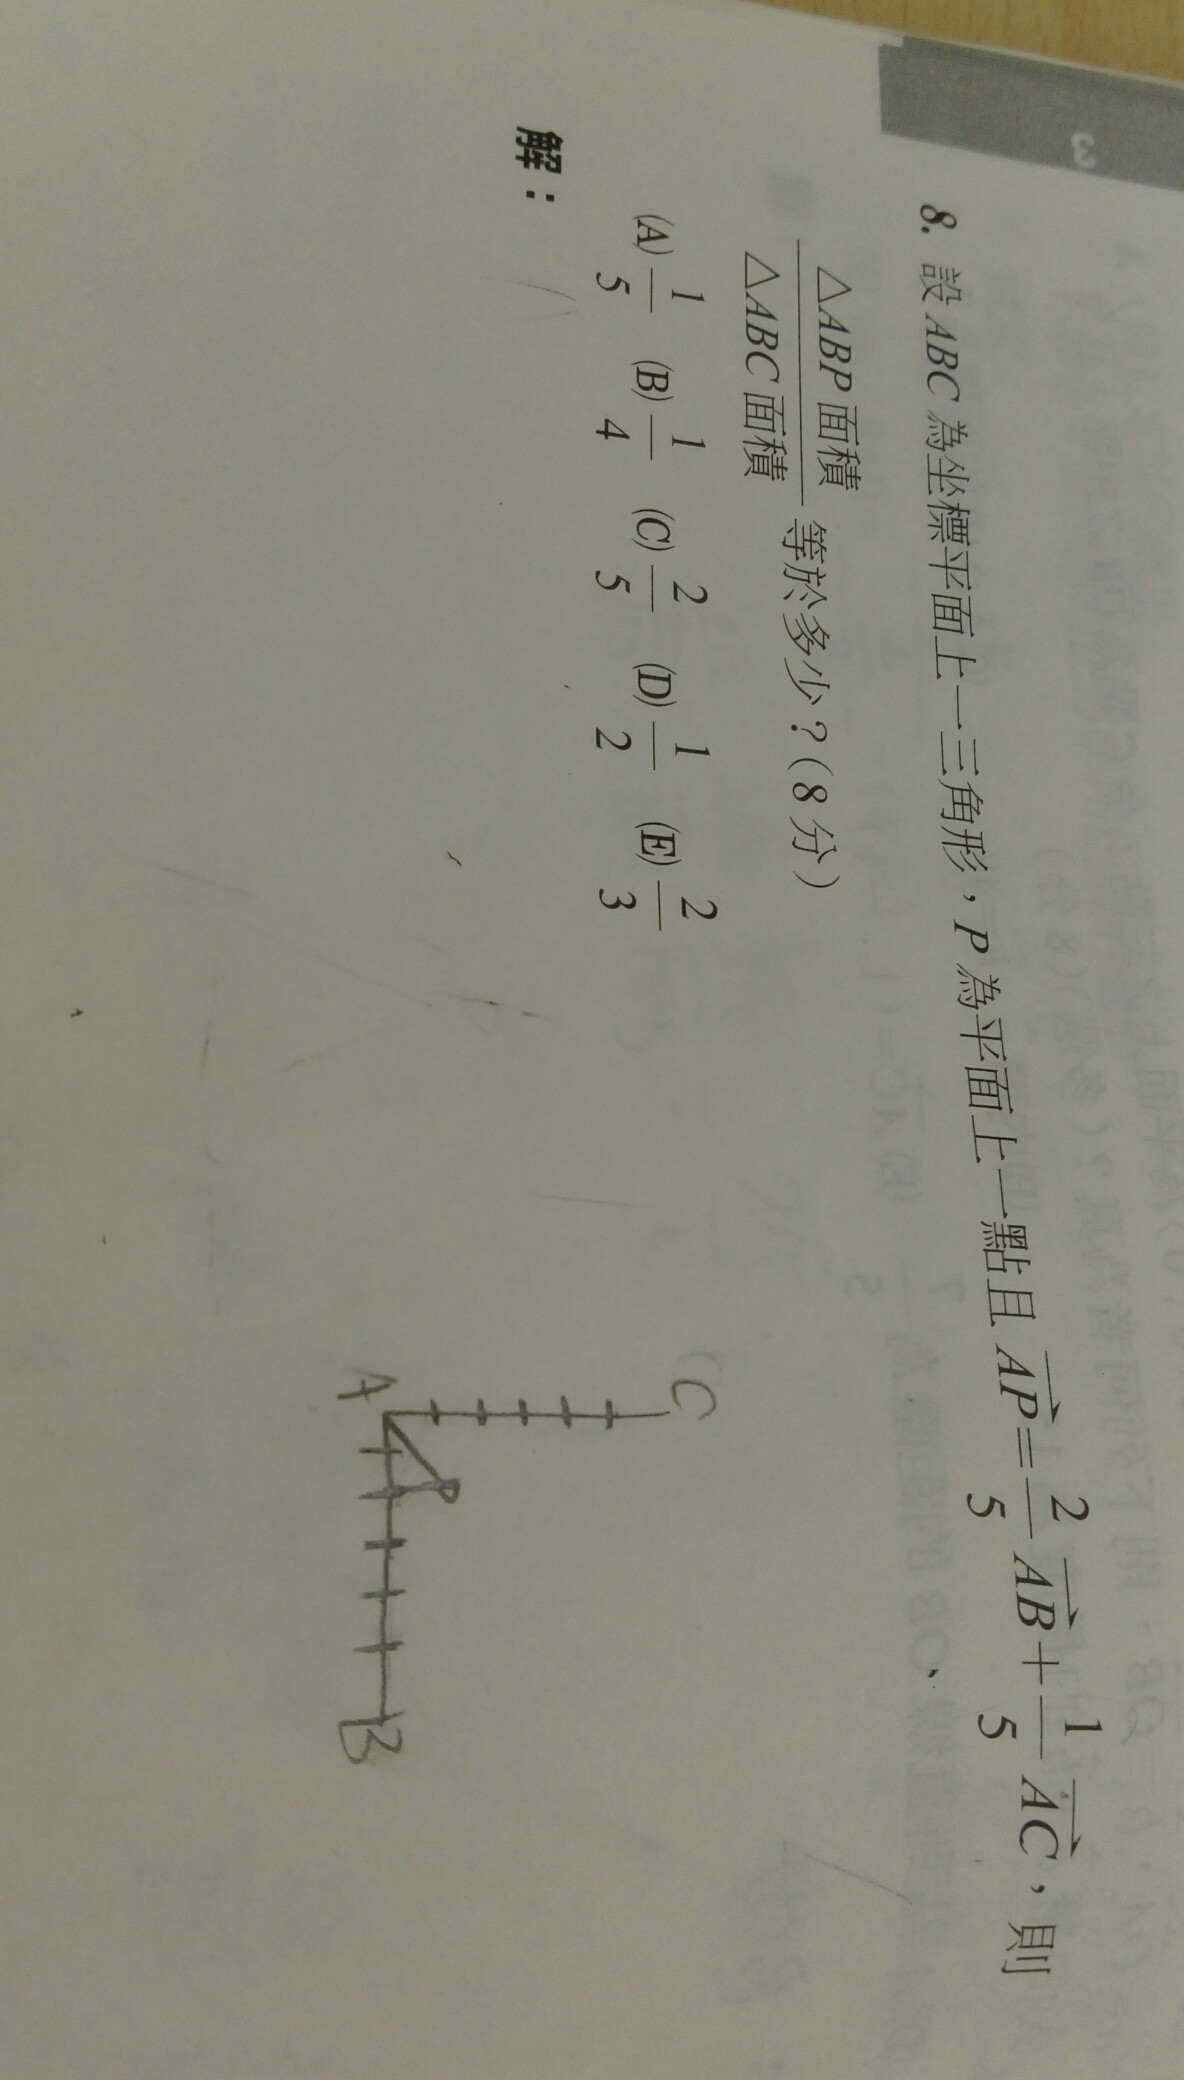 3
8. 設 ABC 為坐標平面上一三角形，P 為平面上一點且 $\overrightarrow{AP}=\frac{2}{5}\overrightarrow{AB}+\frac{1}{5}\overrightarrow{AC}$，則
$\frac{△ABP面積}{△ABC面積}$ 等於多少？(8 分)
(A) $\frac{1}{5}$ (B) $\frac{1}{4}$ (C) $\frac{2}{5}$ (D) $\frac{1}{2}$ (E) $\frac{2}{3}$
解：
C
P
A
B